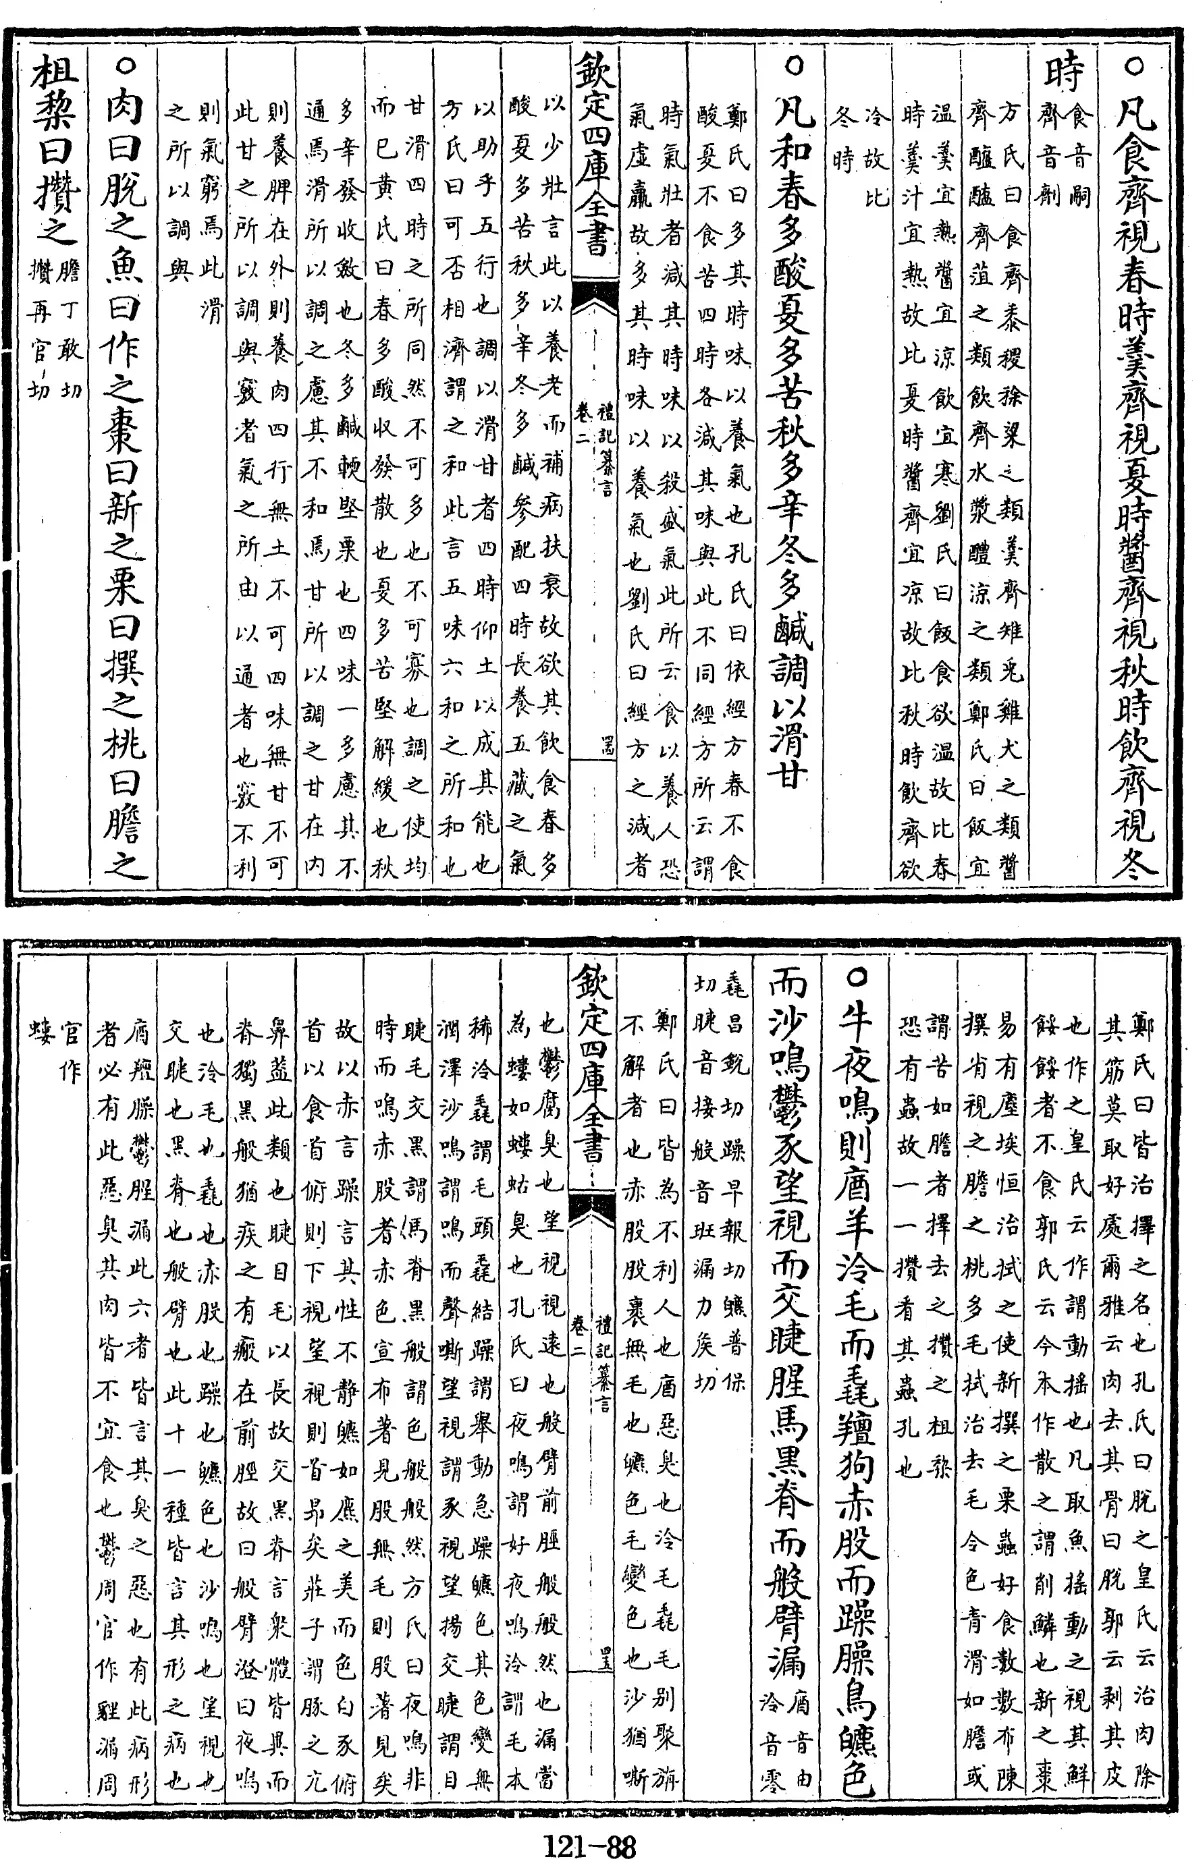 ○凡食齊視春時羹齊視夏時醬齊視秋時飲齊視冬
時食音嗣
齊音劑
方氏曰食齊黍稷稌粱之類羹齊雉兎雞犬之類醬
齊醯醢齊菹之類飲齊水漿醴涼之類鄭氏曰飯宜
溫羹宜熱醬宜涼飲宜寒劉氏曰飯食欲溫故比春
時羹汁宜熱故比夏時醬齊宜凉故比秋時飲齊欲
冷故比
冬時
○凡和春多酸夏多苦秋多辛冬多鹹調以滑甘
鄭氏曰多其時味以養氣也孔氏曰依經方春不食
酸夏不食苦四時各減其味與此不同經方所云謂
時氣壯者減其時味以殺盛氣此所云食以養人恐
氣虛羸故多其時味以養氣也劉氏曰經方之減者
欽定四庫全書
禮記纂言
卷二
以少壯言此以養老而補病扶衰故欲其飲食春多
酸夏多苦秋多辛冬多鹹參配四時長養五藏之氣
以助乎五行也調以滑甘者四時仰土以成其能也
方氏曰可否相濟謂之和此言五味六和之所和也
甘滑四時之所同然不可多也不可寡也調之使均
而已黄氏曰春多酸收發散也夏多苦堅解緩也秋
多辛發收斂也冬多鹹輭堅栗也四味一多慮其不
通焉滑所以調之慮其不和焉甘所以調之甘在内
則養脾在外則養肉四行無土不可四味無甘不可
此甘之所以調與竅者氣之所由以通者也竅不利
則氣窮焉此滑
之所以調與
○肉曰脫之魚曰作之棗曰新之栗曰撰之桃曰膽之
柤棃曰攢之膽丁敢切
攢再官切
鄭氏曰皆治擇之名也孔氏曰脫之皇氏云治肉除
其筋莫取好處爾雅云肉去其骨曰脫郭云剥其皮
也作之皇氏云作謂動搖也凡取魚搖動之視其鮮
餒餒者不食郭氏云今本作散之謂削鱗也新之棗
易有塵埃恒治拭之使新撰之栗蟲好食數數布陳
撰省視之膽之桃多毛拭治去毛令色青滑如膽或
謂苦如膽者擇去之攢之柤棃
恐有蟲故一一攢看其蟲孔也
○牛夜鳴則庮羊泠毛而毳羶狗赤股而躁臊鳥皫色
而沙鳴鬱豕望視而交睫腥馬黑脊而般臂漏庮音由
泠音零
毳昌銳切躁早報切皫普保
切睫音接般音班漏力矦切
鄭氏曰皆為不利人也庮惡臭也泠毛毳毛别聚旃
不解者也赤股股裏無毛也皫色毛變色也沙猶嘶
欽定四庫全書
禮記纂言
卷二
也鬱腐臭也望視視遠也般臂前脛般般然也漏當
為螻如螻蛄臭也孔氏曰夜鳴謂好夜鳴泠謂毛本
稀泠毳謂毛頭毳結躁謂舉動急躁皫色其色變無
潤澤沙鳴謂鳴而聲嘶望視謂豕視望揚交睫謂目
睫毛交黑謂馬脊黑般謂色般般然方氏曰夜鳴非
時而鳴赤股者赤色宣布著見股無毛則股著見矣
故以赤言躁言其性不静皫如麃之美而色白豕俯
首以食首俯則下視望視則首昻矣莊子謂豚之亢
鼻葢此類也睫目毛以長故交黑脊言衆體皆異而
脊獨黑般猶疾之有瘢在前脛故曰般臂澄曰夜鳴
也泠毛也毳也赤股也躁也皫色也沙鳴也望視也
交睫也黑脊也般臂也此十一種皆言其形之病也
庮羶臊鬱腥漏此六者皆言其臭之惡也有此病形
者必有此惡臭其肉皆不宜食也鬱周官作貍漏周
官作
螻
121-88